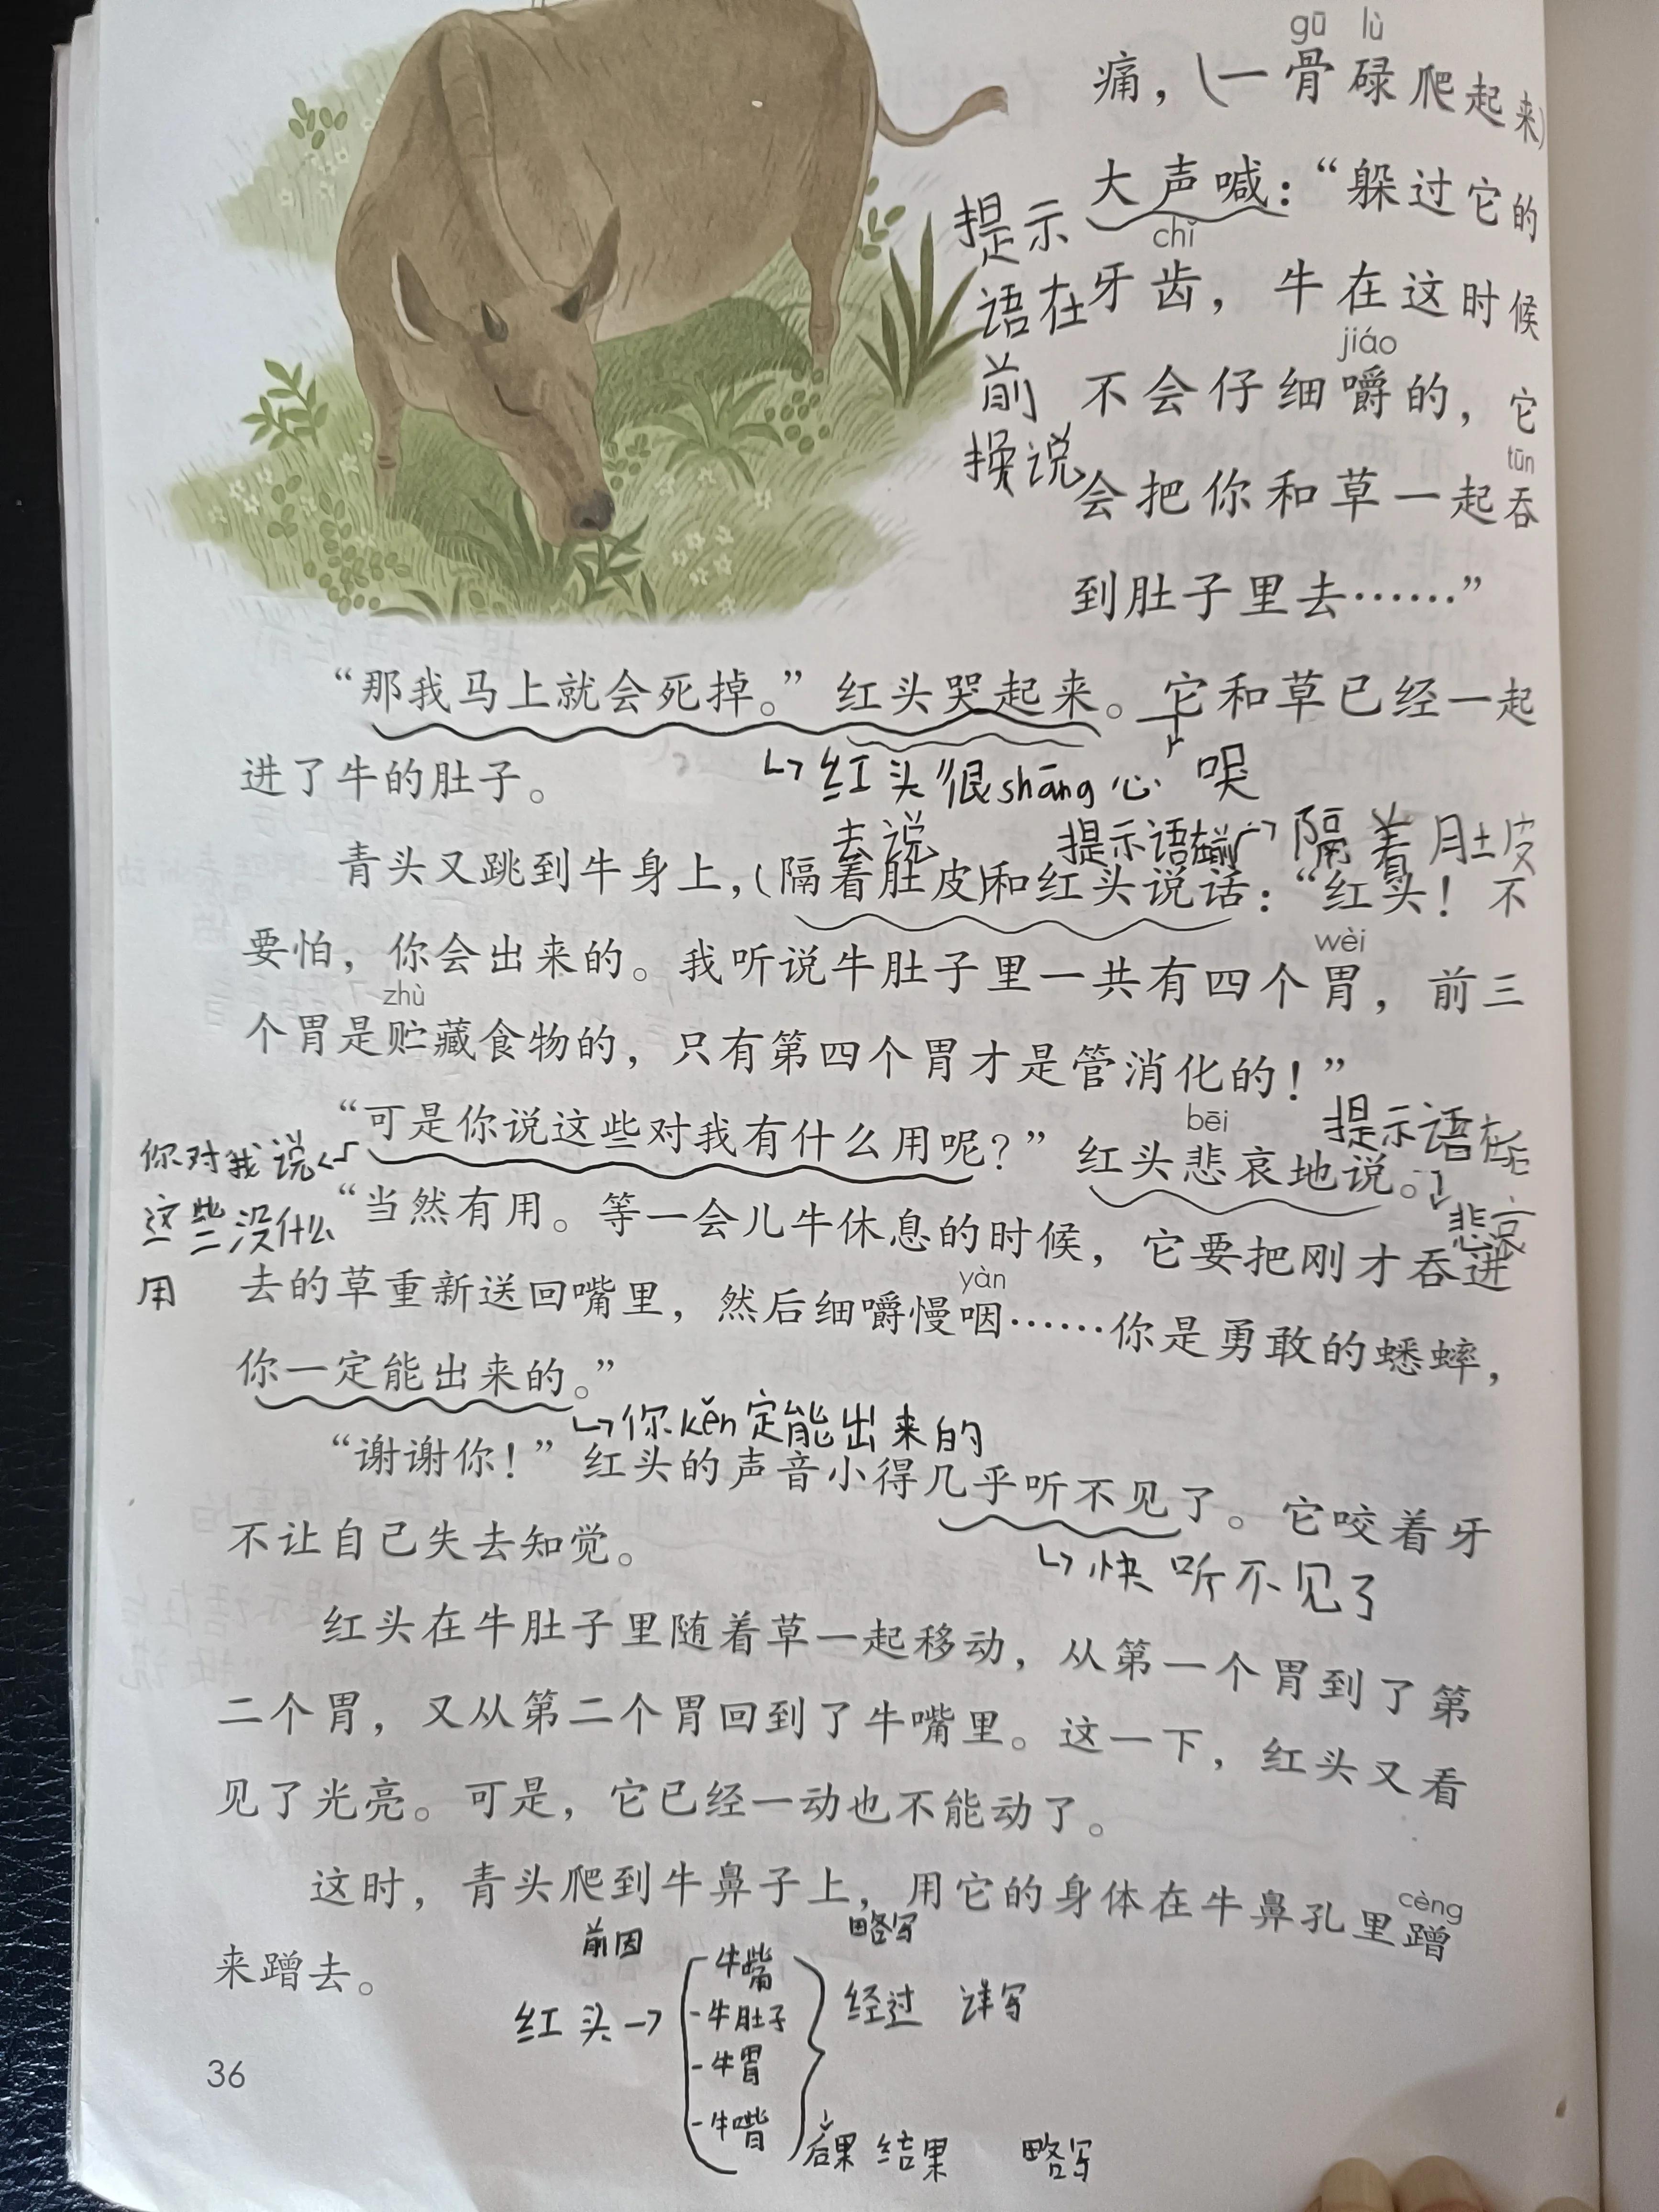 gū lù
痛，(一骨碌爬起来)
大声喊：“躲过它的
提示
chǐ
语在
牙齿，牛在这时候
jiáo
前
不会仔细嚼的，它
换说
tūn
会把你和草一起吞
到肚子里去……”
“那我马上就会死掉。”红头哭起来。它和草已经一起
进了牛的肚子。
红头很shāng心 哭
去说
提示语在前
隔着肚皮
青头又跳到牛身上，(隔着肚皮)和红头说话：“红头！不
要怕，你会出来的。我听说牛肚子里一共有四个胃，前三
wèi
zhù
个胃是贮藏食物的，只有第四个胃才是管消化的！”
bēi
提示语在后
你对我说
“可是你说这些对我有什么用呢？”红头悲哀地说。
这些没什么
悲哀
用
“当然有用。等一会儿牛休息的时候，它要把刚才吞进
yàn
去的草重新送回嘴里，然后细嚼慢咽……你是勇敢的蟋蟀，
你一定能出来的。”
你kěn定能出来的
“谢谢你！”红头的声音小得几乎听不见了。它咬着牙
不让自己失去知觉。
快听不见了
红头在牛肚子里随着草一起移动，从第一个胃到了第
二个胃，又从第二个胃回到了牛嘴里。这一下，红头又看
见了光亮。可是，它已经一动也不能动了。
cèng
这时，青头爬到牛鼻子上，用它的身体在牛鼻孔里蹭
来蹭去。
前因
略写
牛嘴
红头→
-牛肚子
经过 详写
-牛胃
-牛嘴
后果 结果 略写
36